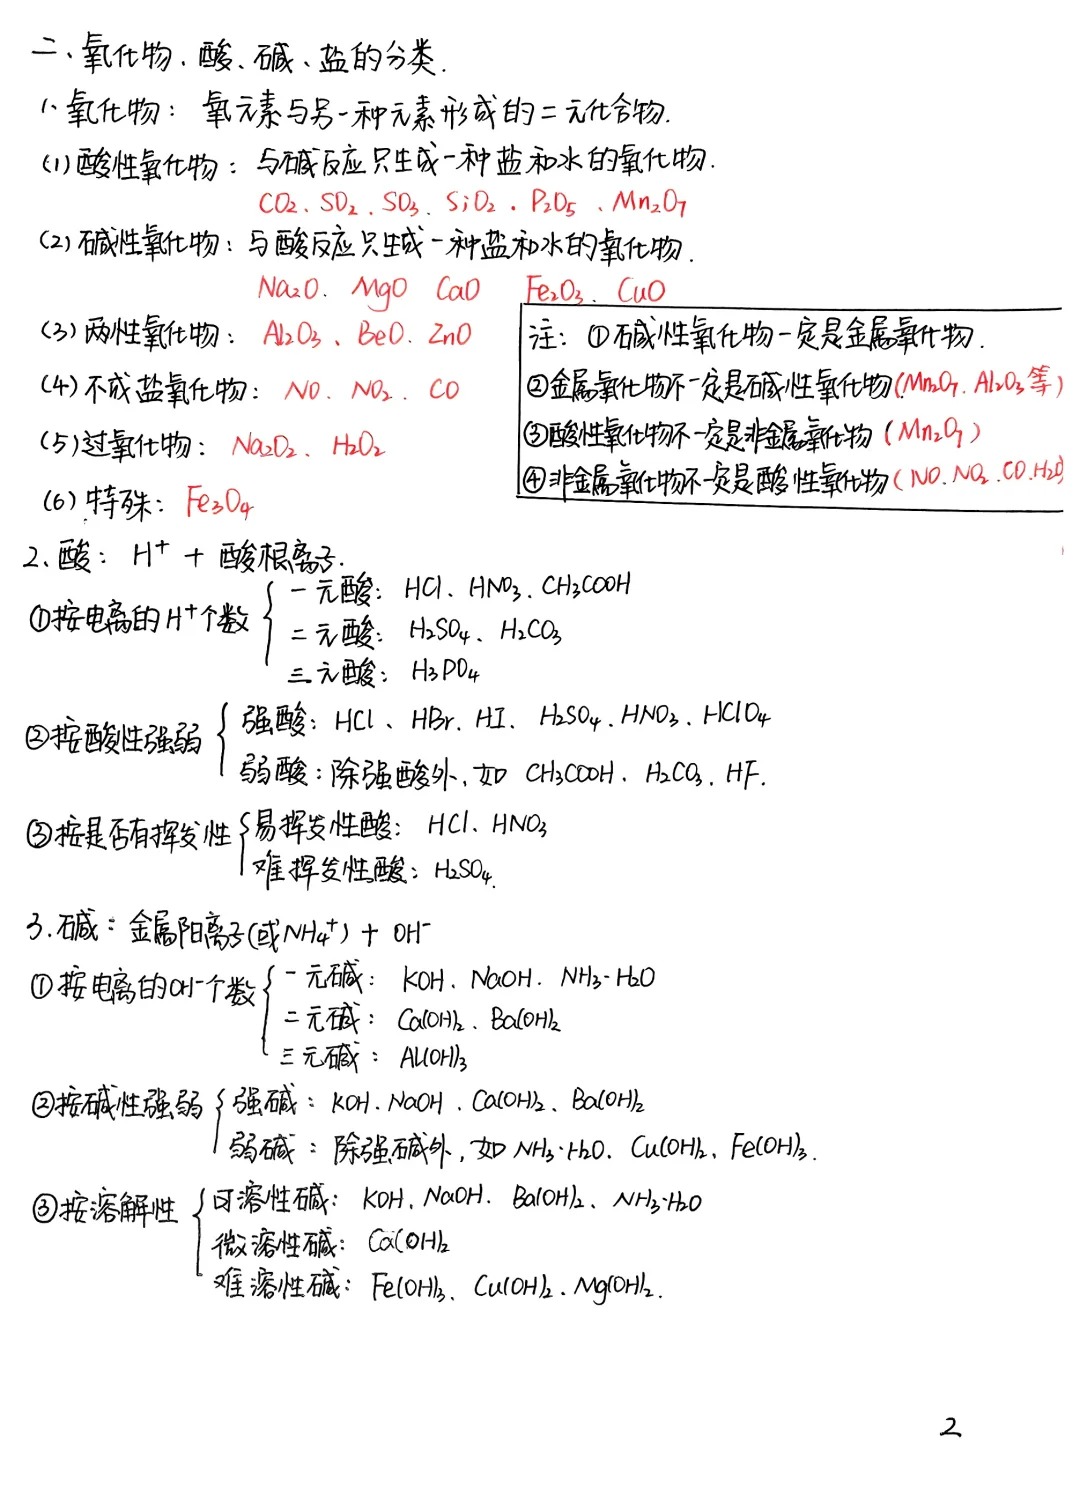 二、氧化物、酸、碱、盐的分类.
1、氧化物：氧元素与另一种元素形成的二元化合物.
(1)酸性氧化物：与碱反应只生成一种盐和水的氧化物.
CO₂、SO₂、SO₃、SiO₂、P₂O₅、Mn₂O₇
(2)碱性氧化物：与酸反应只生成一种盐和水的氧化物.
Na₂O、MgO CaO Fe₂O₃、CuO
(3)两性氧化物：Al₂O₃、BeO、ZnO
(4)不成盐氧化物：NO、NO₂、CO
(5)过氧化物：Na₂O₂、H₂O₂
(6)特殊：Fe₃O₄
注：①碱性氧化物一定是金属氧化物.
②金属氧化物不一定是碱性氧化物(Mn₂O₇、Al₂O₃等)
③酸性氧化物不一定是非金属氧化物(Mn₂O₇)
④非金属氧化物不一定是酸性氧化物(NO、NO₂、CO、H₂O)
2、酸：H⁺ + 酸根离子.
①按电离的H⁺个数
一元酸：HCl、HNO₃、CH₃COOH
二元酸：H₂SO₄、H₂CO₃
三元酸：H₃PO₄
②按酸性强弱
强酸：HCl、HBr、HI、H₂SO₄、HNO₃、HClO₄
弱酸：除强酸外，如 CH₃COOH、H₂CO₃、HF.
③按是否有挥发性
易挥发性酸：HCl、HNO₃
难挥发性酸：H₂SO₄.
3.碱：金属阳离子(或NH₄⁺) + OH⁻
①按电离的OH⁻个数
一元碱：KOH、NaOH、NH₃·H₂O
二元碱：Ca(OH)₂、Ba(OH)₂
三元碱：Al(OH)₃
②按碱性强弱
强碱：KOH、NaOH、Ca(OH)₂、Ba(OH)₂
弱碱：除强碱外，如 NH₃·H₂O、Cu(OH)₂、Fe(OH)₃.
③按溶解性
可溶性碱：KOH、NaOH、Ba(OH)₂、NH₃·H₂O
微溶性碱：Ca(OH)₂
难溶性碱：Fe(OH)₃、Cu(OH)₂、Mg(OH)₂.
2